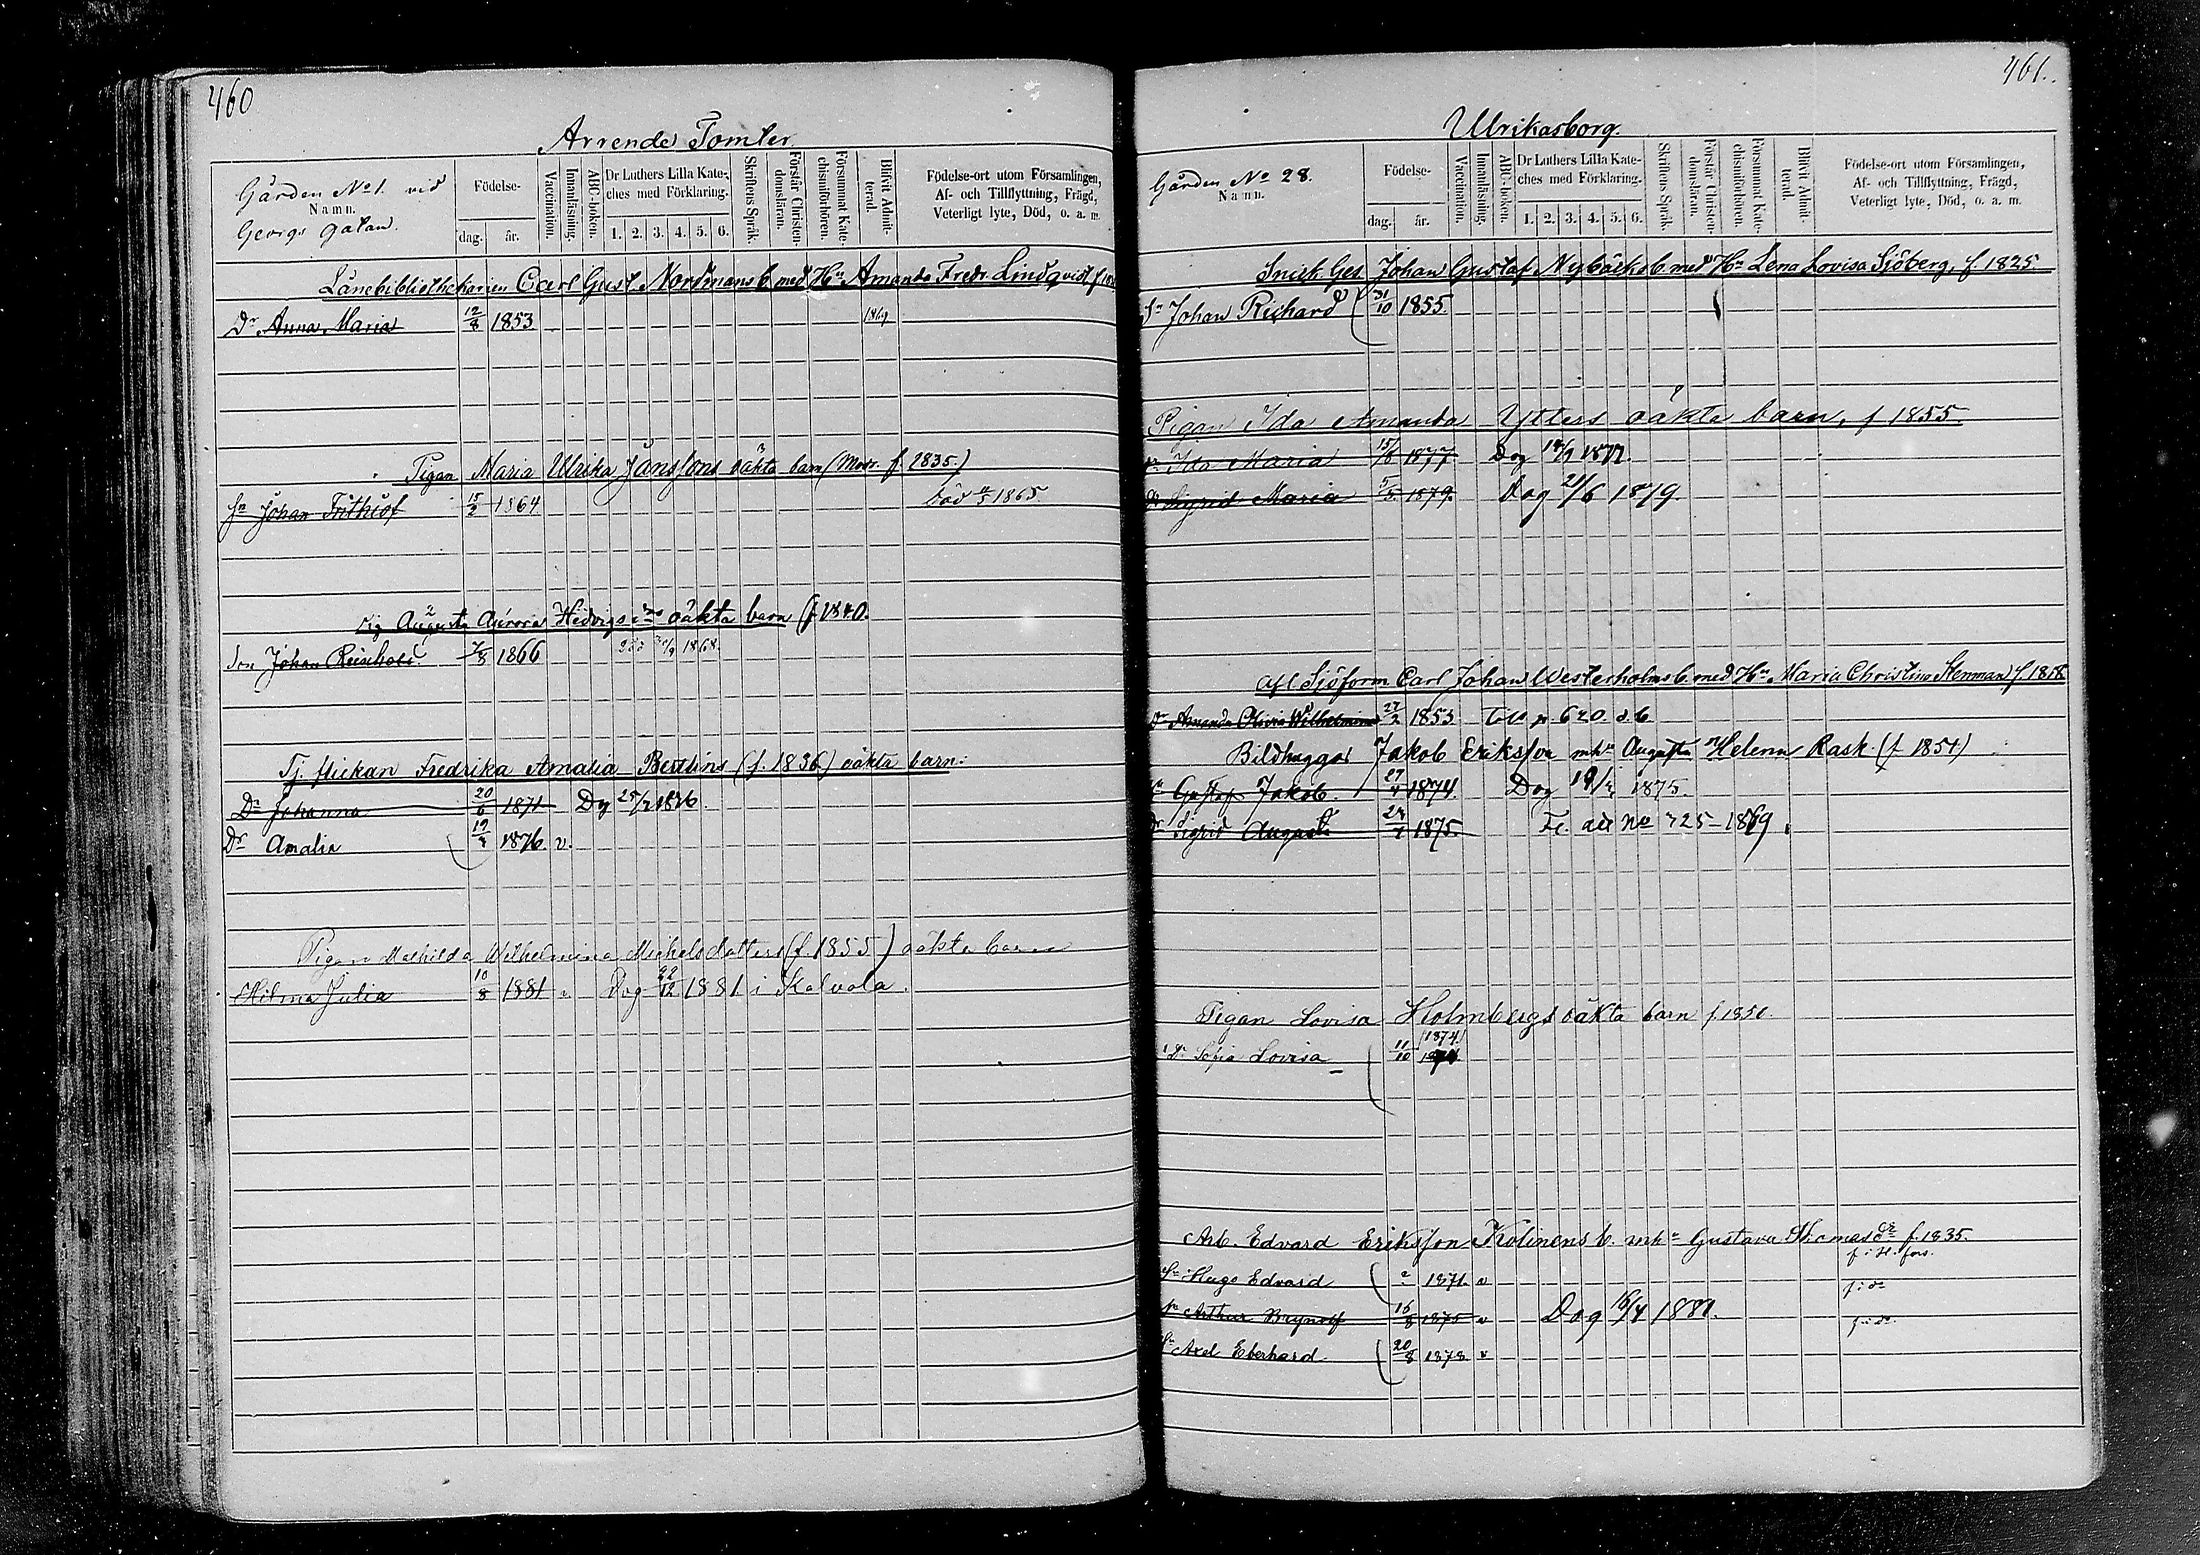 460
Arrende Tomter
Gården No 1. vid
Namn.
Georgs gatan.
Födelse-
dag. år.
Vaccination.
Innanläsning.
ABC-boken.
Dr Luthers Lilla Kate-
ches med Förklaring.
1. 2. 3. 4. 5. 6.
Skriftens Språk.
Förstår Christen-
domsläran.
Försummat Kate-
chismiförhören.
Blifvit Admit-
terad.
Födelse-ort utom Församlingen,
Af- och Tillflyttning, Frägd,
Veterligt lyte, Död, o. a. m.
Lånebibliothekarien Carl Gust Nordmans b. med Hu Amanda Fredr. Lindqvist
Dr Anna Maria 12/8 1853 1869
Pigan Maria Ulrika Janssons oäkta barn (Modr. f. 1835)
Sn Johan Frithiof 1864 död 1865
Pig Augusta Aurora Hedvigs oäkta barn (f 1840.
Son Johan Reinhold. 1866 död 1868.
Tj. flickan Fredrika Amalia Bertlins (f. 1836) oäkta barn:
Dr Johanna 20/6 1871 Dog 1876.
Dr Amalia 1876. v.
Pigan Mathilda Wilhelmina Michelsdotters (f. 1855) oäkta barn
Hilma Julia 10/8 1881 v Dog 22/12 1881 i Kalvola.
461.
Ulrikasborg.
Gården No 28.
Namn.
Födelse-
dag. år.
Vaccination.
Innanläsning.
ABC-boken.
Dr Luthers Lilla Kate-
ches med Förklaring.
1. 2. 3. 4. 5. 6.
Skriftens Språk.
Förstår Christen-
domsläran.
Försummat Kate-
chismiförhören.
Blifvit Admit-
terad.
Födelse-ort utom Församlingen,
Af- och Tillflyttning, Frägd,
Veterligt lyte, Död, o. a. m.
Snick. Ges. Johan Gustaf Nybäcks b. med Hu Lena Lovisa Sjöberg, f. 1825.
Sn Johan Richard 31/10 1855.
Pigan Ida Amanda Ytters oäkta barn, f 1855.
Dr Ida Maria 15/8 1877 Dog 1877.
Dr Sigrid Maria 1879. Dog 21/6 1879
Afl Sjöform Carl Johan Westerholms b. med Hu Maria Christina Stenman f. 1818
Dr Amanda Olivia Wilhelmina 1853 Till p 620. d. b.
Bildhuggar Jakob Eriksson mhu Augusta Helena Rask. (f 1851)
Sn Gustaf Jakob. 1874. Dog 1875.
Dr Sigrid Augusta 1875. No 725-1869
Pigan Lovisa Holmbergs oäkta barn f. 1850.
1874
Dr Sofia Lovisa 11/10
Arb. Edvard Eriksson Kolinens b. mhu Gustava Thomasdr f. 1835.
f. i H. fors.
Sn Hugo Edvard 1871. v f. i do
Sn Arthur Brynolf 16/8 1875 v Dog 16/4 1881. f. i do
Sn Axel Eberhard 20/8 1878 v